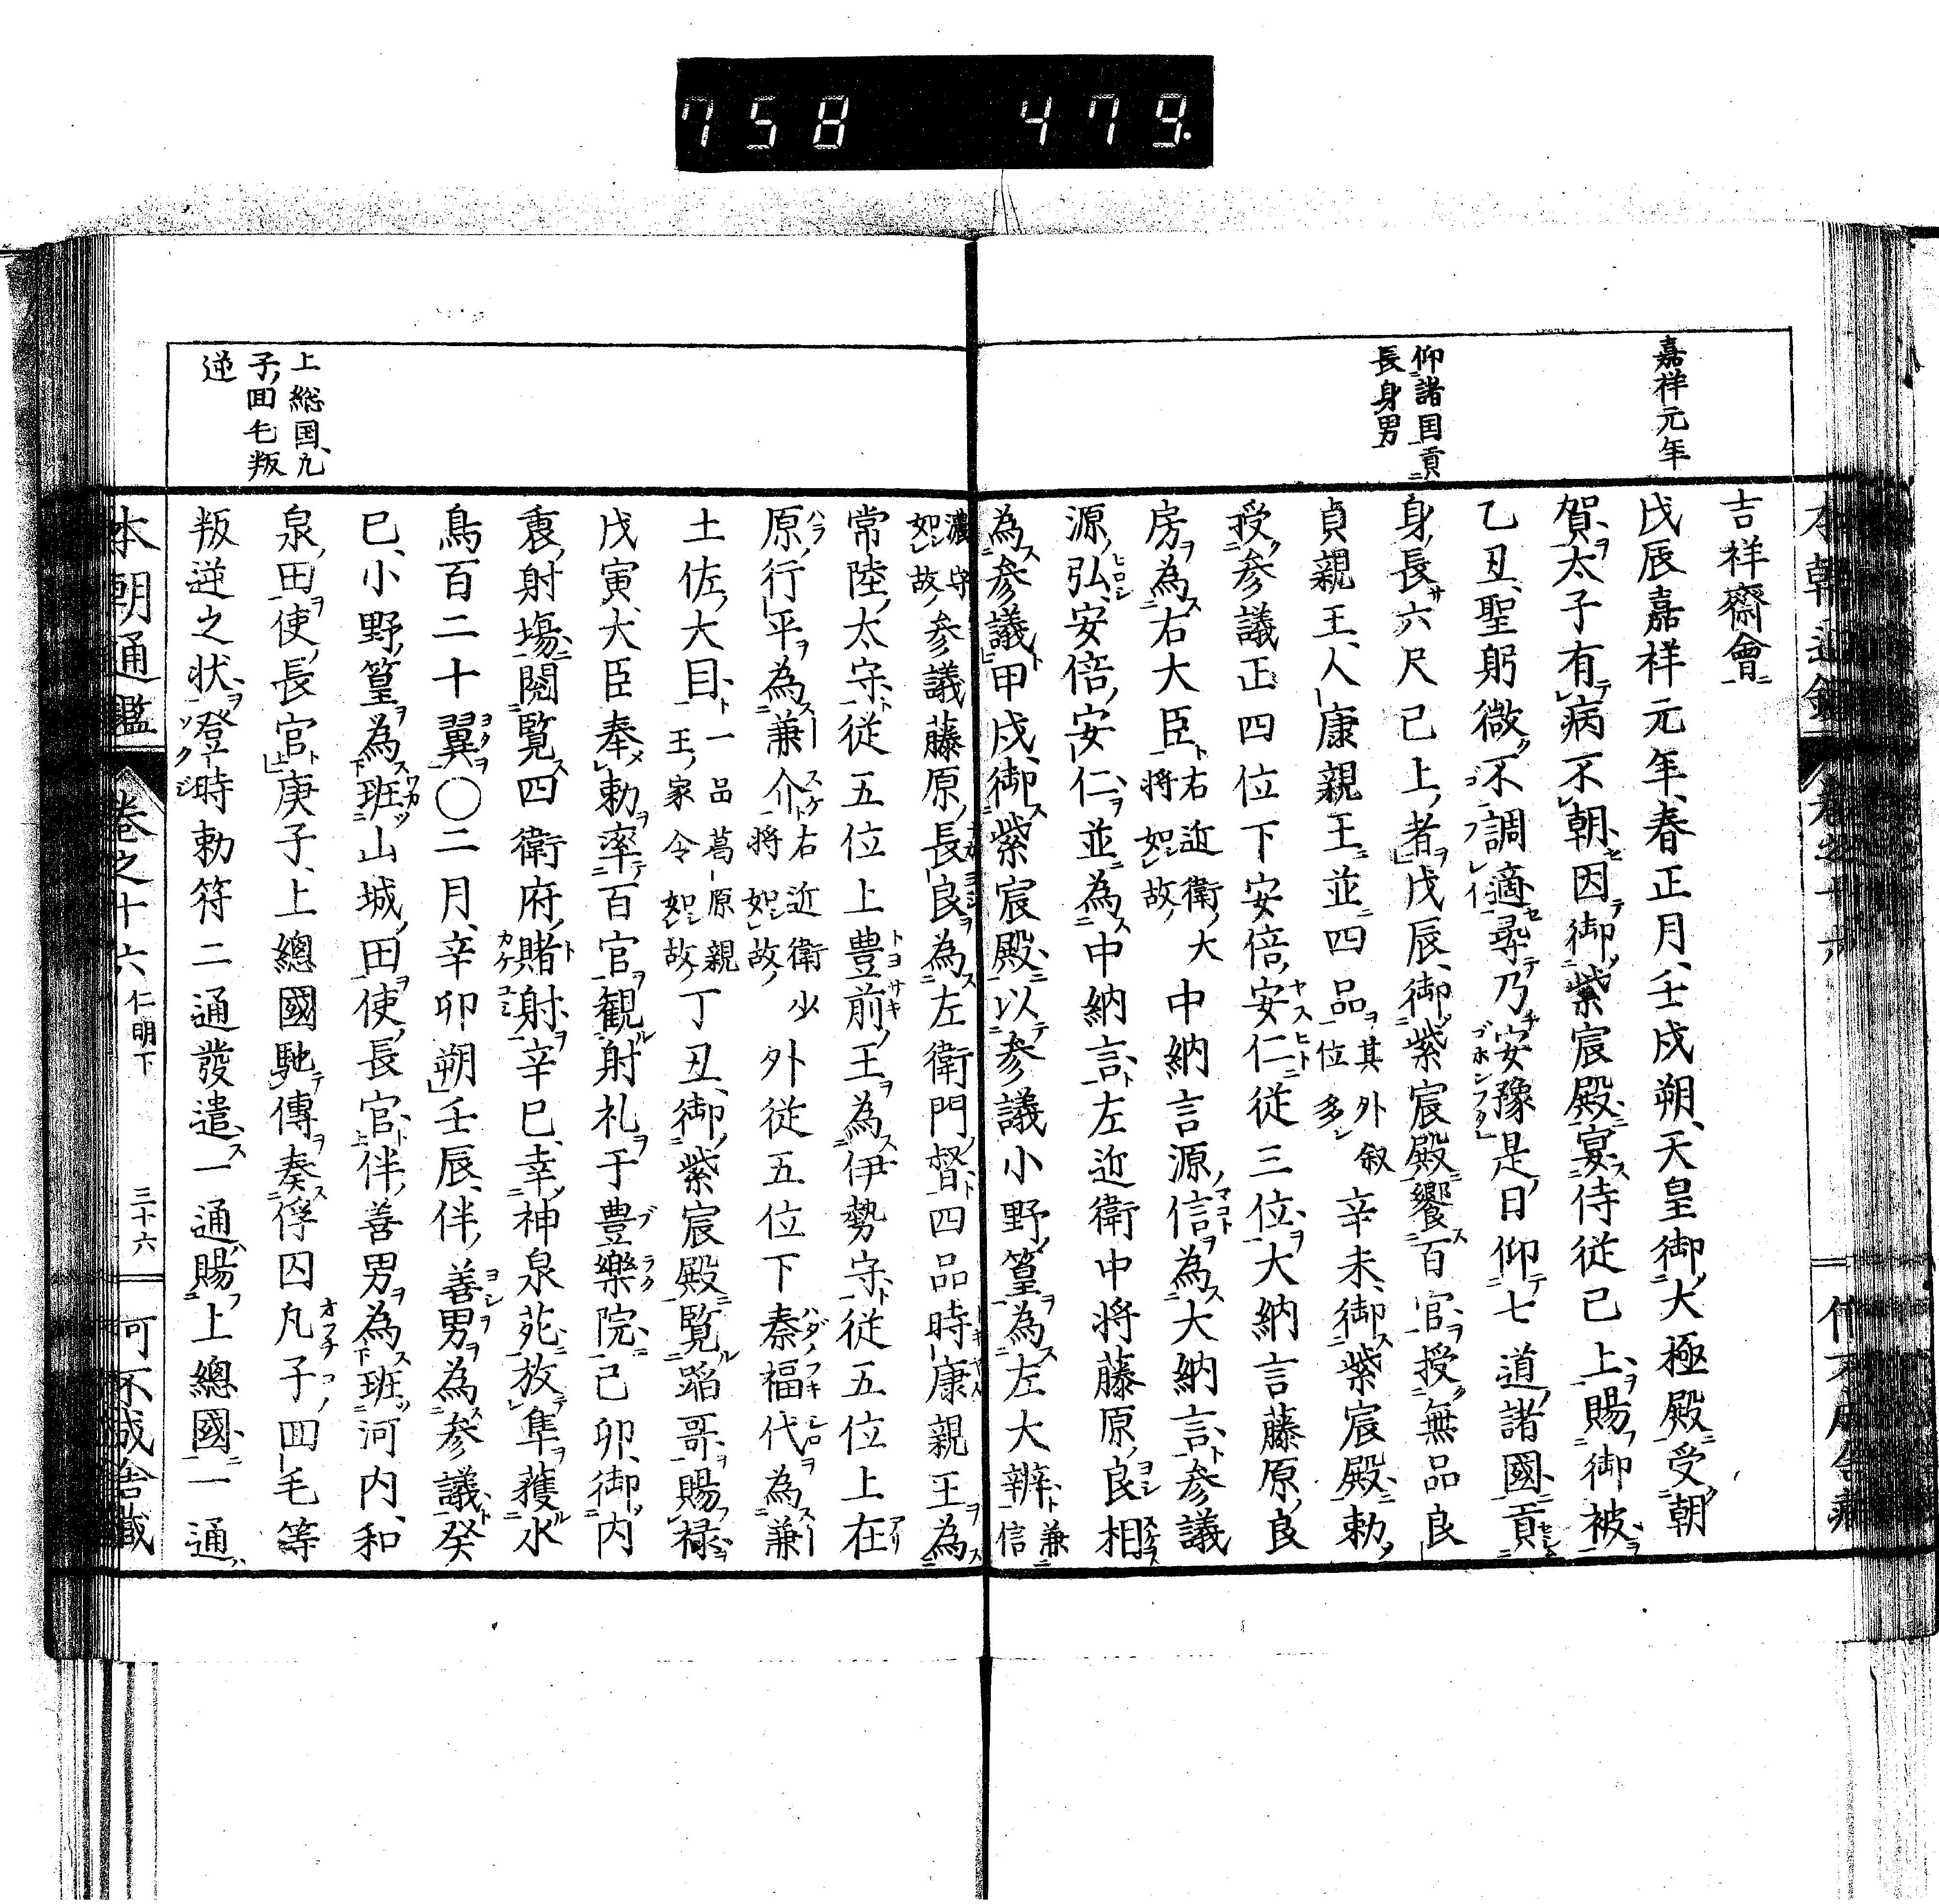 758 479.
嘉祥元年
仰諸国貢
長身男
吉祥齋會
戊辰嘉祥元年春正月壬戌朔天皇御大極殿受朝
賀太子有病不朝因御紫宸殿宴侍從已上賜御被
乙丑聖躬微不調適尋乃安豫是日仰七道諸國貢
身長六尺已上者戊辰御紫宸殿饗百官授無品良
貞親王人康親王並四品其外叙位多辛未御紫宸殿勅
授参議正四位下安倍安仁従三位大納言藤原良
房為右大臣右近衛大将如故中納言源信為大納言参議
源弘安倍安仁並為中納言左近衛中将藤原良相
為参議甲戌御紫宸殿以参議小野篁為左大辨兼信
濃守如故参議藤原長良為左衛門督四品時康親王為
常陸太守従五位上豊前王為伊勢守従五位上在
原行平為兼介右近衛少将如故外従五位下秦福代為兼
土佐大目一品葛原親王家令如故丁丑御紫宸殿覧蹈哥賜禄
戊寅大臣奉勅率百官観射礼于豊樂院己卯御内
裏射場閲覧四衛府賭射辛巳幸神泉苑放隼獲水
鳥百二十翼〇二月辛卯朔壬辰伴善男為参議癸
巳小野篁為班山城田使長官伴善男為班河内和
泉田使長官庚子上總國馳傳奏俘囚凡子回毛等
叛逆之状登時勅符二通發遣一通賜上總國一通
上総国凡
子回毛叛
逆
本朝通鑑 卷之十六 仁明下 三十六 可不成舎蔵